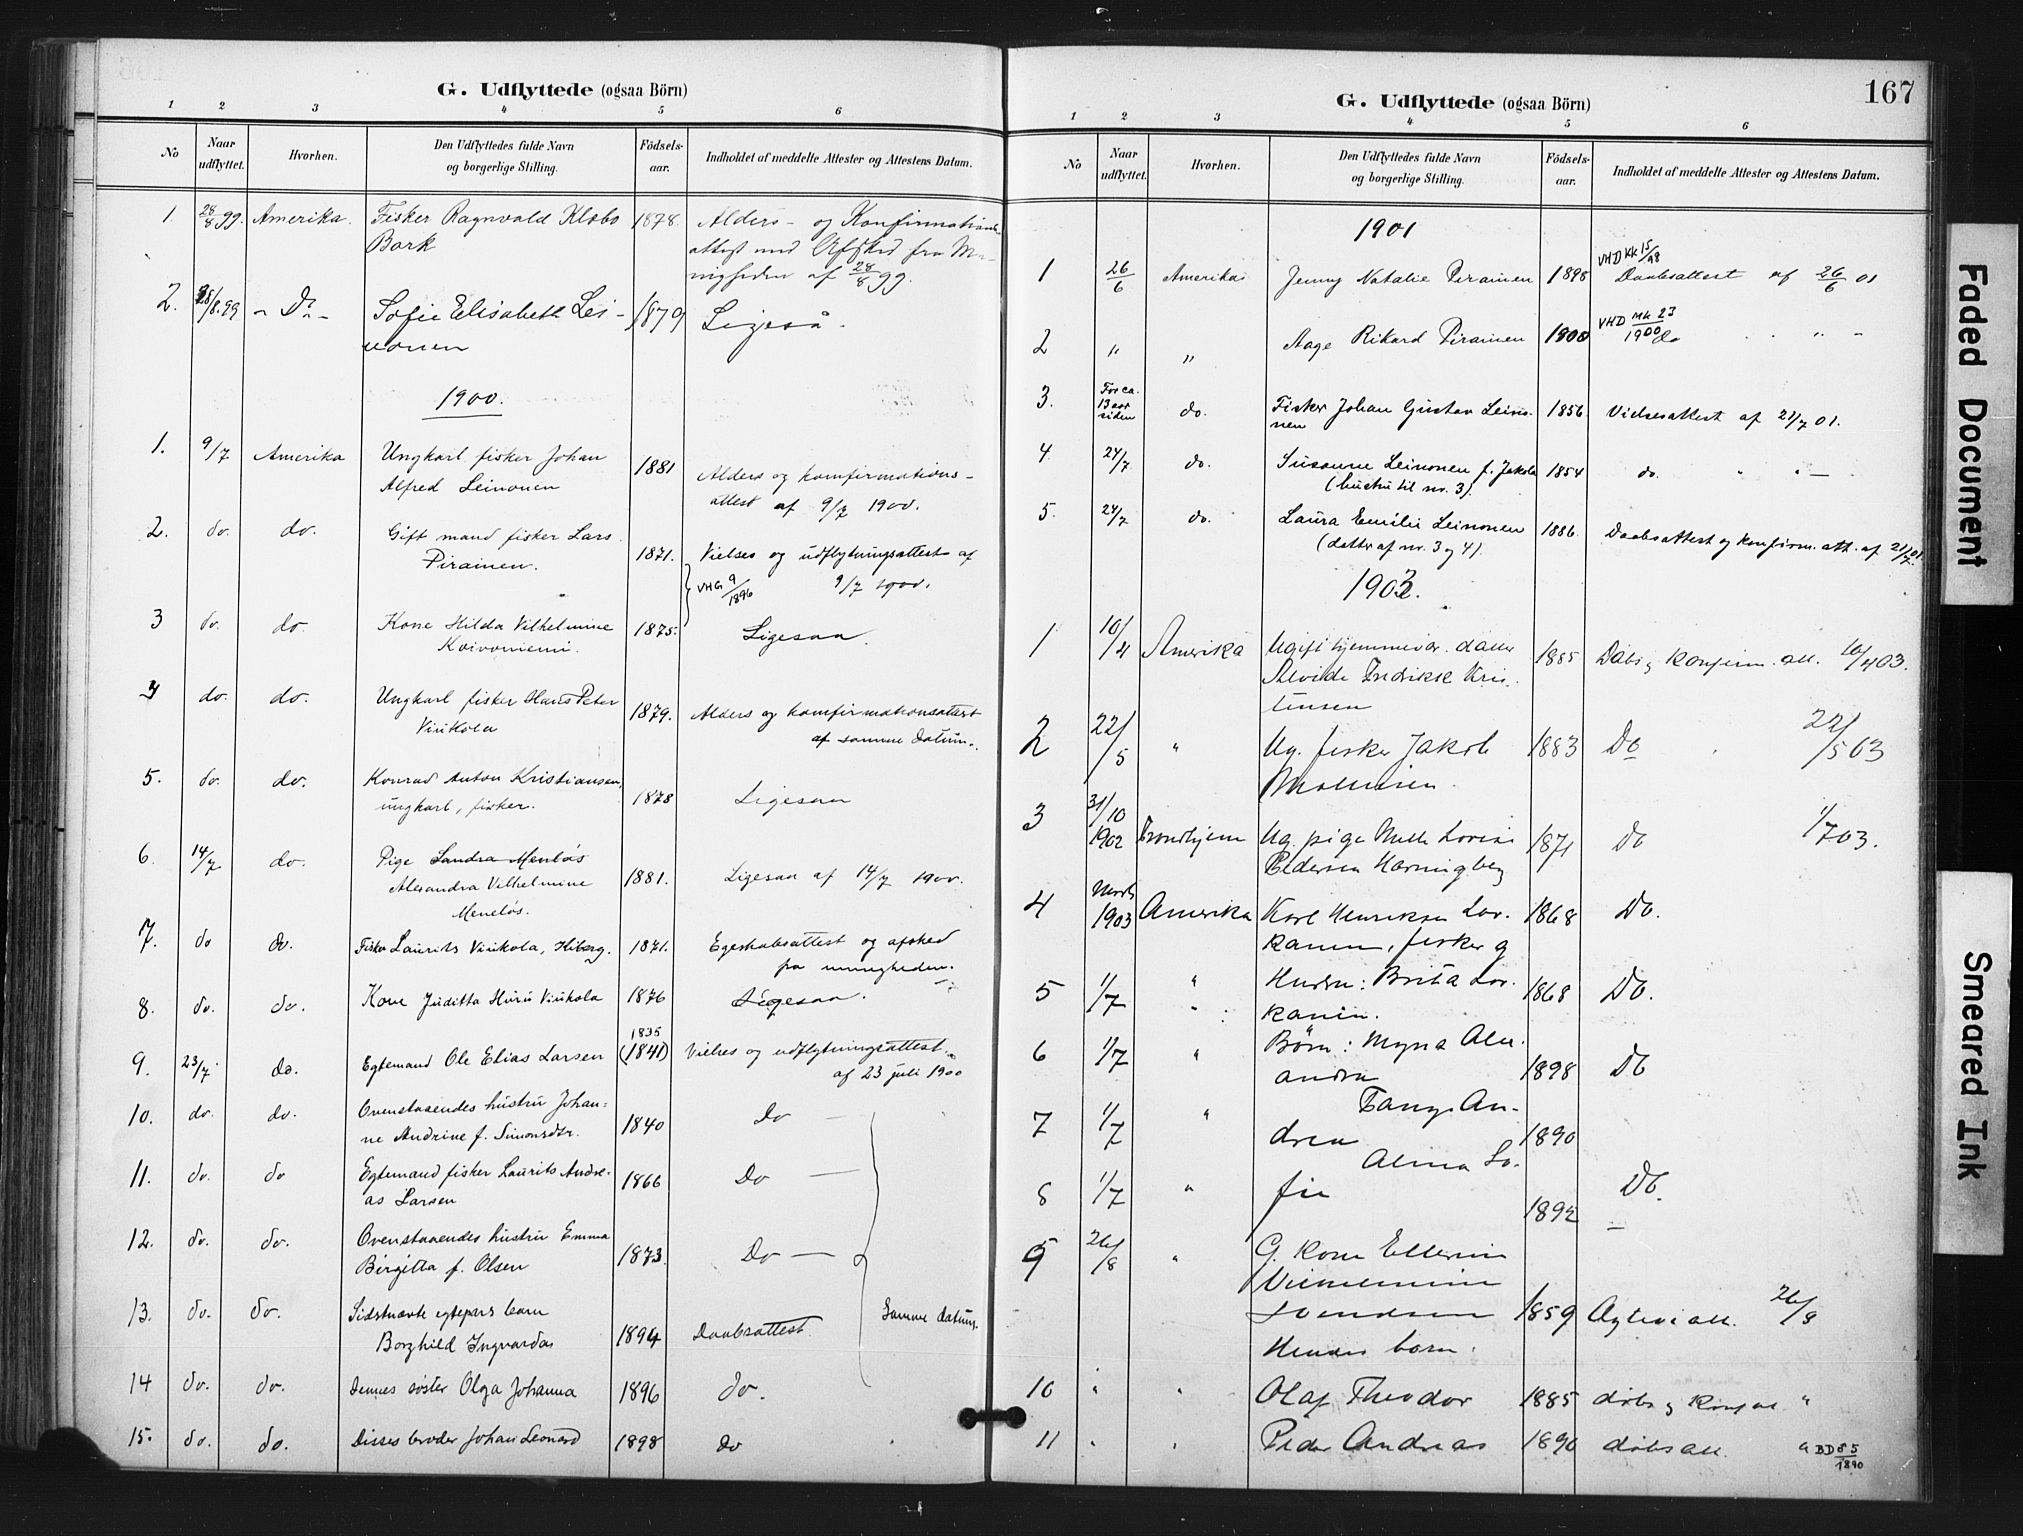 G. Udflyttede (ogsaa Börn)
1 2 3 4 5 6
No Naar udflyttet. Hvorhen. Den Udflyttedes fulde Navn og borgerlige Stilling. Födsels-aar. Indholdet af meddelte Attester og Attestens Datum.
1. 28/8 99. Amerika. Fisker Ragnvald Klæbo 1878. Alders- og Konfirmations-
Bark attest med Afsked fra Me-
nigheden af 28/8 99.
2. 28/8.99 - Do - Sofie Elisabeth Lei- 1879 Ligeså.
nonen
1900.
1. 9/7 Amerika Ungkarl fisker Johan 1881 Alders og konfirmations-
Alfred Leinonen attest af 9/7 1900.
2. do. do. Gift mand fisker Lars 1871. Vielses og udflytningsattest af
Pirainen. VHG 9/1896 9/7 1900.
3 do. do. Kone Hilda Vilhelmine 1875. Ligesaa.
Koivoniemi.
4 do. do. Ungkarl fisker Hans Peter 1879. Alders og konfirmationsattest
Viikola af samme Datum.
5. do. do. Konrad Anton Kristiansen, 1878 Ligesaa
ungkarl, fisker.
6. 14/7 do. Pige Sandra Menløs 1881. Ligesaa af 14/7 1900.
Alexandra Vilhelmine
Meneløs.
7. do do. Fisker Laurits Viikola, Hiberg. 1871. Egteskabsattest og afsked
fra menigheden.
8. do. do. Kone Juditta Huru Viikola 1876 Ligesaa.
9. 23/7 do. Egtemand Ole Elias Larsen 1835 (1841) Vielses og udflytningsattest
af 23 juli 1900
10. do. do. Ovenstaaendes hustru Johan- 1840 Do —
ne Andrine f. Simonsdtr.
11. do. do Egtemand fisker Laurits Andre- 1866 Do —
as Larsen
12. do. do. Ovenstaaendes hustru Emma 1873. Do —
Birgitta f. Olsen
13. do. do. Sidstnævte egtepars barn 1894 Daabsattest Samme datum.
Borghild Ingvarda
14 do. do. Dennes søster Olga Johanna 1896 do.
15. do. do. Disses broder Johan Leonard 1898 do
G. Udflyttede (ogsaa Börn) 167
1 2 3 4 5 6
No Naar udflyttet. Hvorhen. Den Udflyttedes fulde Navn og borgerlige Stilling. Födsels-aar. Indholdet af meddelte Attester og Attestens Datum.
1901
1 26/6 Amerika Jenny Natalie Pirainen 1898 VHD KK 15/98 Daabsattest af 26/6 01
2 " " Aage Rikard Pirainen 1900 VHD MK 23/1900 do " "
3. For ca. 13 aar siden do. Fisker Johan Gustav Leino- 1856. Vielsesattest af 21/7 01.
nen
4 24/7 do. Susanne Leinonen f. Jakola 1854 do. " " —
(hustru til nr. 3).
5. 24/7 do. Laura Emilie Leinonen 1886. Daabsattest og konfirm. att. af 21/7 01.
(datter af nr. 3 og 4).
1903.
1 10/4 Amerika Ugift hjemmevær. datter 1885 Dåbs og konfirm. att. 10/4 03.
Alvilde Fredrikke Kris-
tensen
2 22/5 " Ug. fisker Jakob 1883 Do 22/5 03
3 31/10 1902 Trondhjem Ug. pige Lovise 1871 Do 1/7 03.
Pedersen Havningberg
4 Marts 1903 Amerika Karl Henriksen Lor- 1868 Do.
kanen, fisker og
5 1/7 " Hustru: Brita Lor- 1868 Do.
kanen.
6 1/7 " Børn: Myna Alex- 1898 Do
andra
7 1/7 " Fanny An- 1890
drea
8 1/7 " Alma So- 1892 Do.
fie
9 26/8 " G. kone Ellerine
Vilhelmine
Svendsen 1859 26/8
Hendes barn.
10 " " Olaf Theodor 1885 dåbs og konf att. "
11 " " Peder Andreas 1890 dåbsatt. " BD 85/1890
Faded Document
Smeared Ink